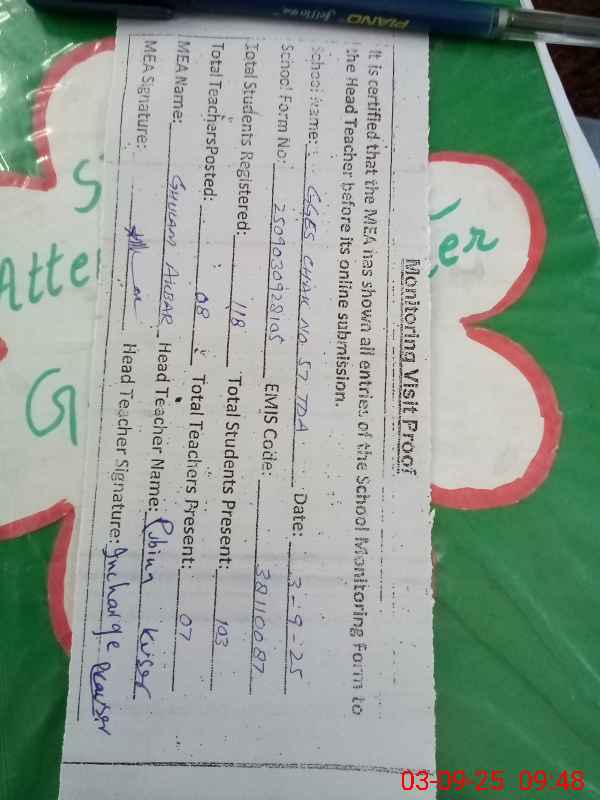 PIANO
Monitoring Visit Proof
It is certified that the MEA has shown all entries of the School Monitoring Form to
the Head Teacher before its online submission.
School Name: GGES CHAK NO 57 TDA Date: 3-9-25
School Form No: 2509030928105 EMIS Code: 38110087
Total Students Registered: 118 Total Students Present: 103
Total Teachers Posted: 08 Total Teachers Present: 07
MEA Name: GHULAM AKBAR Head Teacher Name: Rubina Kuiser
MEA Signature: Head Teacher Signature: Incharge
Atte
G
03-09-25 09:48